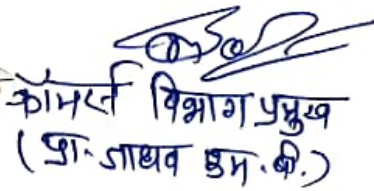 कॉमर्स विभाग प्रमुख
(प्रा. जाधव एम. बी.)